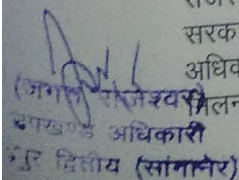 सरक
अधिक
मिलन
(जगत राजेश्वर)
उपखण्ड अधिकारी
पुर द्वितीय (सांगानेर)